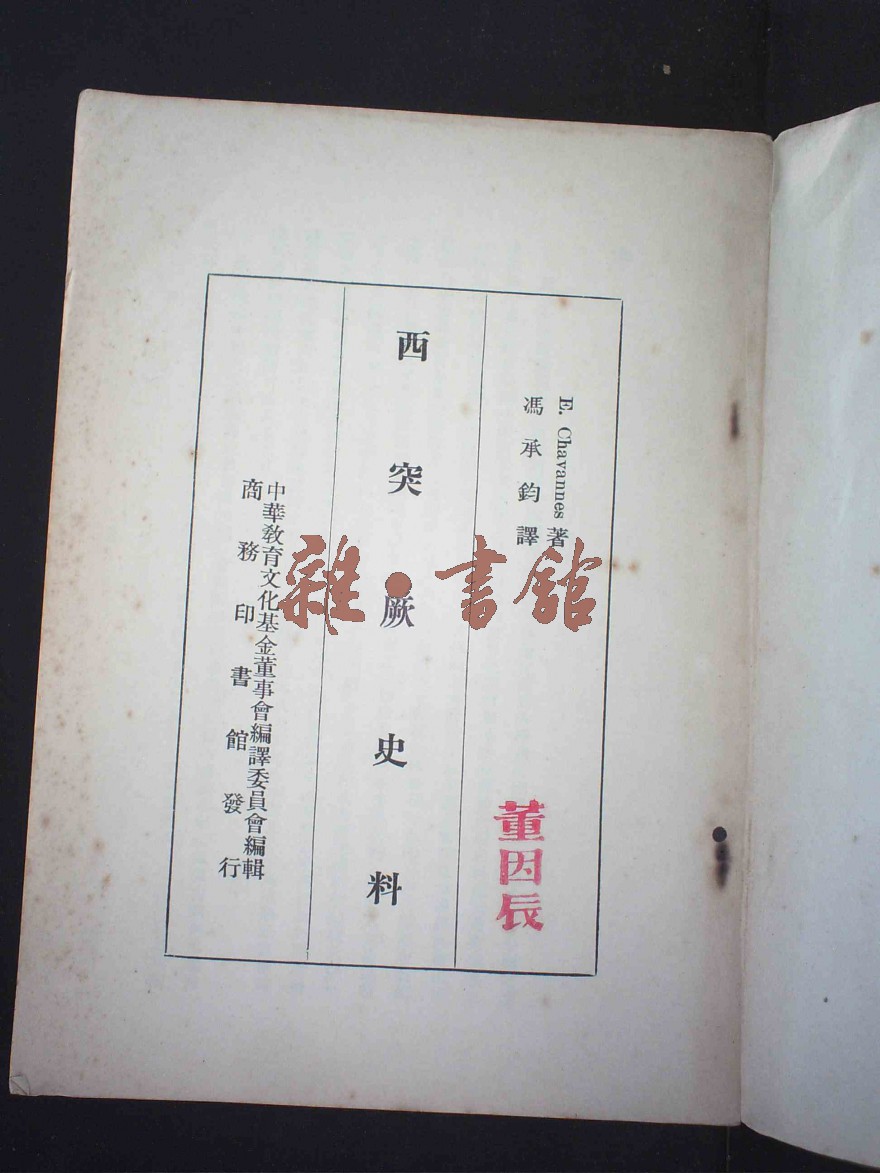 E. Chavannes 著
馮承鈞譯
西突厥史料
中華敎育文化基金董事會編譯委員會編輯
商務印書館發行
董因辰
雜·書館